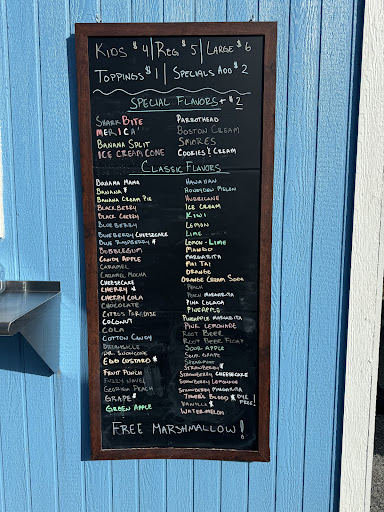 Kids $4 | Reg $5 | Large $6
Toppings $1 | Specials Add $2
Special Flavors + $2
Shark Bite
Merica'
Banana Split
Ice Cream Cone
Parrothead
Boston Cream
Smores
Cookies & Cream
Classic Flavors
Banana Mama
Banana
Banana Cream Pie
Blackberry
Black Cherry
Blueberry
Blueberry Cheesecake
Blue Raspberry
Bubblegum
Candy Apple
Caramel
Caramel Mocha
Cheesecake
Cherry
Cherry Cola
Chocolate
Citrus Paradise
Coconut
Cola
Cotton Candy
Dreamsicle
Egg Custard
Fruit Punch
Fuzzy Navel
Georgia Peach
Grape
Green Apple
Hawaiian
Honeydew Melon
Hurricane
Ice Cream
Kiwi
Lemon
Lime
Lemon-Lime
Mango
Margarita
Mai Tai
Orange
Orange Cream Soda
Peach
Peach Margarita
Pina Colada
Pineapple
Pineapple Margarita
Pink Lemonade
Root Beer
Root Beer Float
Sour Apple
Sour Grape
Spearmint
Strawberry
Strawberry Cheesecake
Strawberry Lemonade
Strawberry Margarita
Tiger's Blood
Vanilla
Watermelon
Dye Free!
Free Marshmallow!